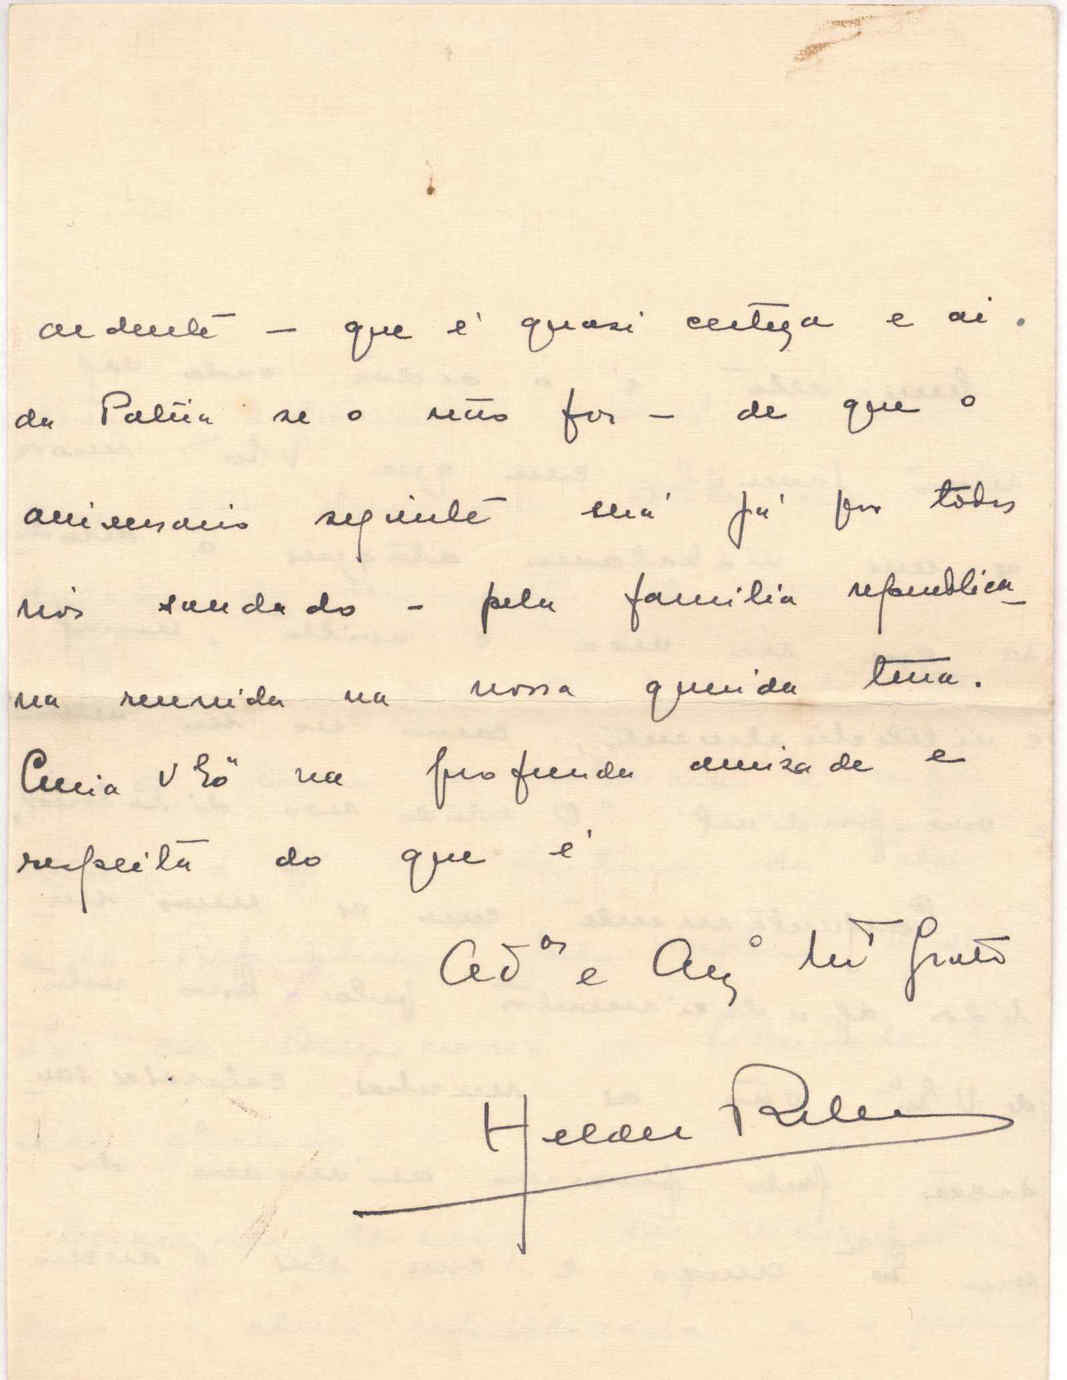 ardente – que é quasi certeza e ai
da Patria se o não for – de que o
aniversario seguinte será já por todos
nós saudado – pela familia republica-
na reunida na nossa querida terra.
Creia V Exª na profunda amizade e
respeito do que é
Adºr e Amgº Mtº Grato
Helder Ribeiro